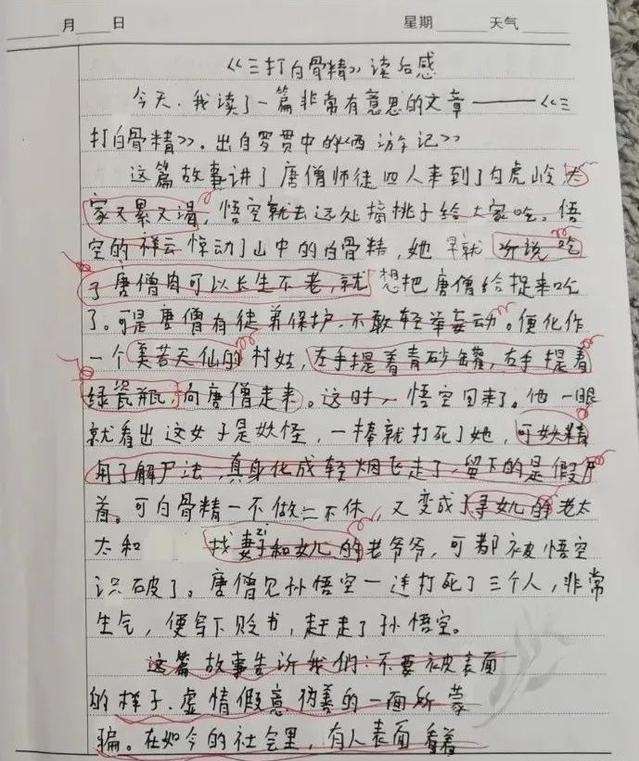 月 日 星期 天气
《三打白骨精》读后感
今天.我读了一篇非常有意思的文章———《三
打白骨精》.出自罗贯中的《西游记》
这篇故事讲了唐僧师徒四人来到了白虎岭大
家又累又渴,悟空就去远处摘桃子给大家吃。悟
空的祥云惊动了山中的白骨精,她早就听说吃
了唐僧肉可以长生不老,就想把唐僧给捉来吃
了。可是唐僧有徒弟保护.不敢轻举妄动。便化作
一个美若天仙的村姑,左手提着青砂罐,右手提着
绿瓷瓶向唐僧走来。这时,悟空回来了。他一眼
就看出这女子是妖怪,一棒就打死了她,可妖精
用了解尸法,真身化成轻烟飞走了,留下的是假尸
首。可白骨精一不做二不休,又变成寻女儿的老太
太和 找妻子zi和女儿的老爷爷,可都被悟空
识破了。唐僧见孙悟空一连打死了三个人,非常
生气,便写下贬书,赶走了孙悟空。
这篇故事告诉我们:不要被表面
的样子.虚情假意伪善的一面所蒙
骗。在如今的社会里,有人表面看着